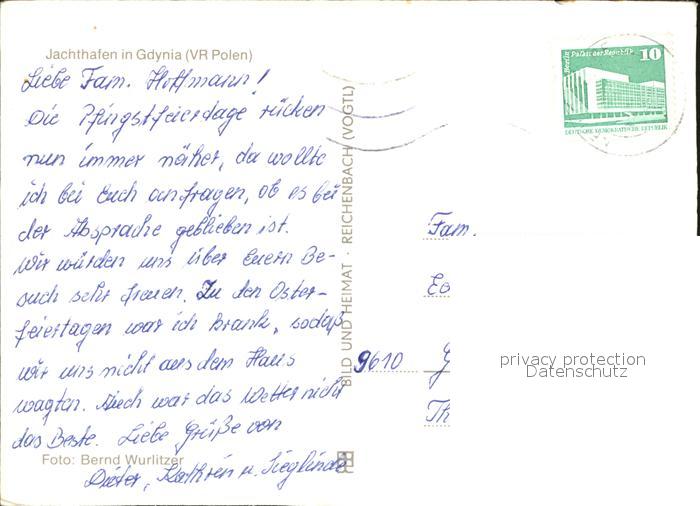 Jachthafen in Gdynia (VR Polen)
Liebe Fam. Hoffmann!
Die Pfingstfeierdage rücken
nun immer näher, da wollte
ich bei Euch anfragen, ob es bei
der Absprache geblieben ist.
Wir würden uns über Euern Be-
such sehr freuen. Zu den Oster-
feiertagen war ich krank, sodaß
wir uns nicht aus dem Haus
wagten. Auch war das Wetter nicht
das Beste. Liebe Grüße von
Dieter, Kathrin u. Sieglinde
Foto: Bernd Wurlitzer
BILD UND HEIMAT · REICHENBACH (VOGTL)
Berlin Palast der Republik 10
DEUTSCHE DEMOKRATISCHE REPUBLIK
Fam.
9610 G
Th
privacy protection
Datenschutz